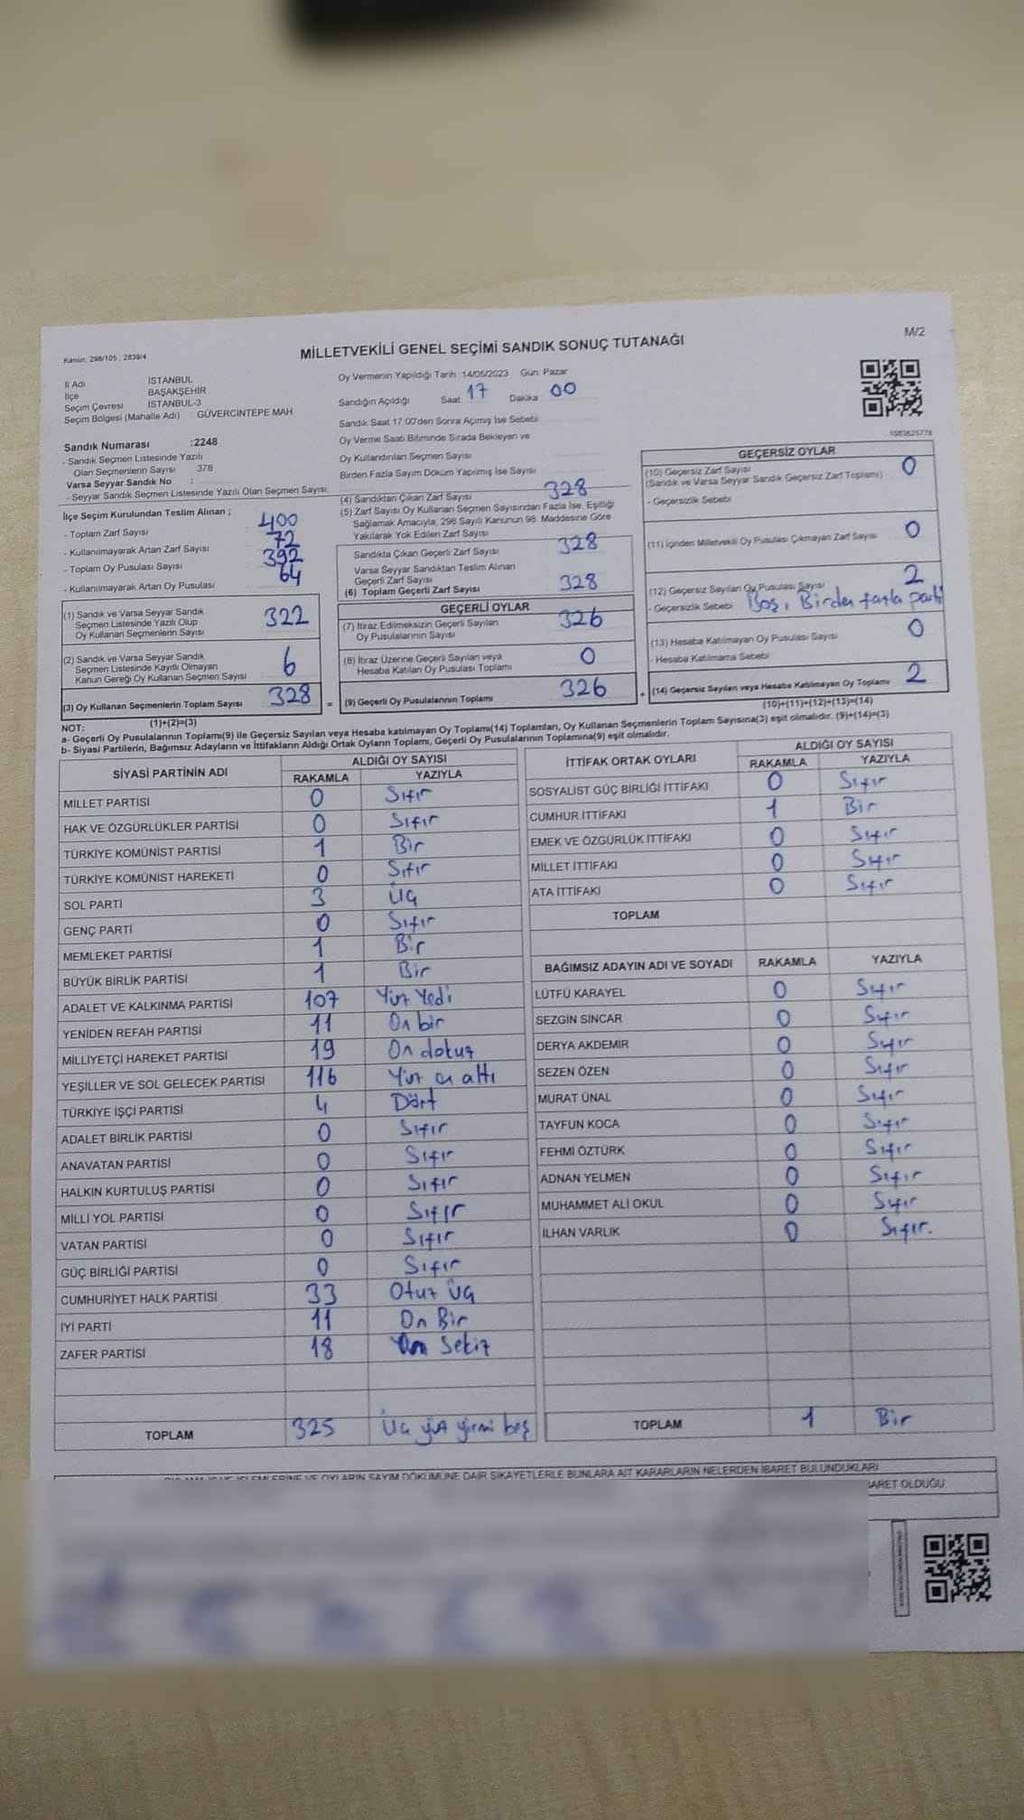 M/2
MİLLETVEKİLİ GENEL SEÇİMİ SANDIK SONUÇ TUTANAĞI
Kanun: 298/105 ; 2839/4
İl Adı İSTANBUL
İlçe BAŞAKŞEHİR
Seçim Çevresi İSTANBUL-3
Seçim Bölgesi (Mahalle Adı) GÜVERCİNTEPE MAH
Oy Vermenin Yapıldığı Tarih :14/05/2023 Gün: Pazar
Sandığın Açıldığı Saat 17 Dakika 00
Sandık Saat 17:00'den Sonra Açılmış İse Sebebi
Oy Verme Saati Bitiminde Sırada Bekleyen ve
Oy Kullandırılan Seçmen Sayısı
Birden Fazla Sayım Döküm Yapılmış İse Sayısı
Sandık Numarası :2248
- Sandık Seçmen Listesinde Yazılı
Olan Seçmenlerin Sayısı 378
Varsa Seyyar Sandık No :
- Seyyar Sandık Seçmen Listesinde Yazılı Olan Seçmen Sayısı
İlçe Seçim Kurulundan Teslim Alınan ;
- Toplam Zarf Sayısı 400
- Kullanılmayarak Artan Zarf Sayısı 72
- Toplam Oy Pusulası Sayısı 392
- Kullanılmayarak Artan Oy Pusulası 64
(1) Sandık ve Varsa Seyyar Sandık
Seçmen Listesinde Yazılı Olup
Oy Kullanan Seçmenlerin Sayısı 322
(2) Sandık ve Varsa Seyyar Sandık
Seçmen Listesinde Kayıtlı Olmayan
Kanun Gereği Oy Kullanan Seçmen Sayısı 6
(3) Oy Kullanan Seçmenlerin Toplam Sayısı 328
(1)+(2)=(3)
(4) Sandıktan Çıkan Zarf Sayısı 328
(5) Zarf Sayısı Oy Kullanan Seçmen Sayısından Fazla İse, Eşitliği
Sağlamak Amacıyla, 298 Sayılı Kanunun 98. Maddesine Göre
Yakılarak Yok Edilen Zarf Sayısı
Sandıkta Çıkan Geçerli Zarf Sayısı 328
Varsa Seyyar Sandıktan Teslim Alınan
Geçerli Zarf Sayısı
(6) Toplam Geçerli Zarf Sayısı 328
GEÇERLİ OYLAR
(7) İtiraz Edilmeksizin Geçerli Sayılan
Oy Pusulalarının Sayısı 326
(8) İtiraz Üzerine Geçerli Sayılan veya
Hesaba Katılan Oy Pusulası Toplamı 0
= (9) Geçerli Oy Pusulalarının Toplamı 326
GEÇERSİZ OYLAR
(10) Geçersiz Zarf Sayısı 0
(Sandık ve Varsa Seyyar Sandık Geçersiz Zarf Toplamı)
- Geçersizlik Sebebi
(11) İçinden Milletvekili Oy Pusulası Çıkmayan Zarf Sayısı 0
(12) Geçersiz Sayılan Oy Pusulası Sayısı 2
- Geçersizlik Sebebi Boş, Birden fazla parti
(13) Hesaba Katılmayan Oy Pusulası Sayısı 0
- Hesaba Katılmama Sebebi
+ (14) Geçersiz Sayılan veya Hesaba Katılmayan Oy Toplamı 2
(10)+(11)+(12)+(13)=(14)
NOT:
a- Geçerli Oy Pusulalarının Toplamı(9) ile Geçersiz Sayılan veya Hesaba katılmayan Oy Toplamı(14) Toplamları, Oy Kullanan Seçmenlerin Toplam Sayısına(3) eşit olmalıdır. (9)+(14)=(3)
b- Siyasi Partilerin, Bağımsız Adayların ve İttifakların Aldığı Ortak Oyların Toplamı, Geçerli Oy Pusulalarının Toplamına(9) eşit olmalıdır.
SİYASİ PARTİNİN ADI ALDIĞI OY SAYISI
RAKAMLA YAZIYLA
MİLLET PARTİSİ 0 Sıfır
HAK VE ÖZGÜRLÜKLER PARTİSİ 0 Sıfır
TÜRKİYE KOMÜNİST PARTİSİ 1 Bir
TÜRKİYE KOMÜNİST HAREKETİ 0 Sıfır
SOL PARTİ 3 Üç
GENÇ PARTİ 0 Sıfır
MEMLEKET PARTİSİ 1 Bir
BÜYÜK BİRLİK PARTİSİ 1 Bir
ADALET VE KALKINMA PARTİSİ 107 Yüz Yedi
YENİDEN REFAH PARTİSİ 11 On bir
MİLLİYETÇİ HAREKET PARTİSİ 19 On dokuz
YEŞİLLER VE SOL GELECEK PARTİSİ 116 Yüz on altı
TÜRKİYE İŞÇİ PARTİSİ 4 Dört
ADALET BİRLİK PARTİSİ 0 Sıfır
ANAVATAN PARTİSİ 0 Sıfır
HALKIN KURTULUŞ PARTİSİ 0 Sıfır
MİLLİ YOL PARTİSİ 0 Sıfır
VATAN PARTİSİ 0 Sıfır
GÜÇ BİRLİĞİ PARTİSİ 0 Sıfır
CUMHURİYET HALK PARTİSİ 33 Otuz üç
İYİ PARTİ 11 On Bir
ZAFER PARTİSİ 18 On Sekiz
TOPLAM 325 Üç yüz yirmi beş
İTTİFAK ORTAK OYLARI ALDIĞI OY SAYISI
RAKAMLA YAZIYLA
SOSYALİST GÜÇ BİRLİĞİ İTTİFAKI 0 Sıfır
CUMHUR İTTİFAKI 1 Bir
EMEK VE ÖZGÜRLÜK İTTİFAKI 0 Sıfır
MİLLET İTTİFAKI 0 Sıfır
ATA İTTİFAKI 0 Sıfır
TOPLAM
BAĞIMSIZ ADAYIN ADI VE SOYADI RAKAMLA YAZIYLA
LÜTFÜ KARAYEL 0 Sıfır
SEZGİN SİNCAR 0 Sıfır
DERYA AKDEMİR 0 Sıfır
SEZEN ÖZEN 0 Sıfır
MURAT ÜNAL 0 Sıfır
TAYFUN KOCA 0 Sıfır
FEHMİ ÖZTÜRK 0 Sıfır
ADNAN YELMEN 0 Sıfır
MUHAMMET ALİ OKUL 0 Sıfır
İLHAN VARLIK 0 Sıfır.
TOPLAM 1 Bir
OYLARIN SAYIM DÖKÜMÜNE DAİR ŞİKAYETLERLE BUNLARA AİT KARARLARIN NELERDEN İBARET BULUNDUKLARI
OLDUĞU